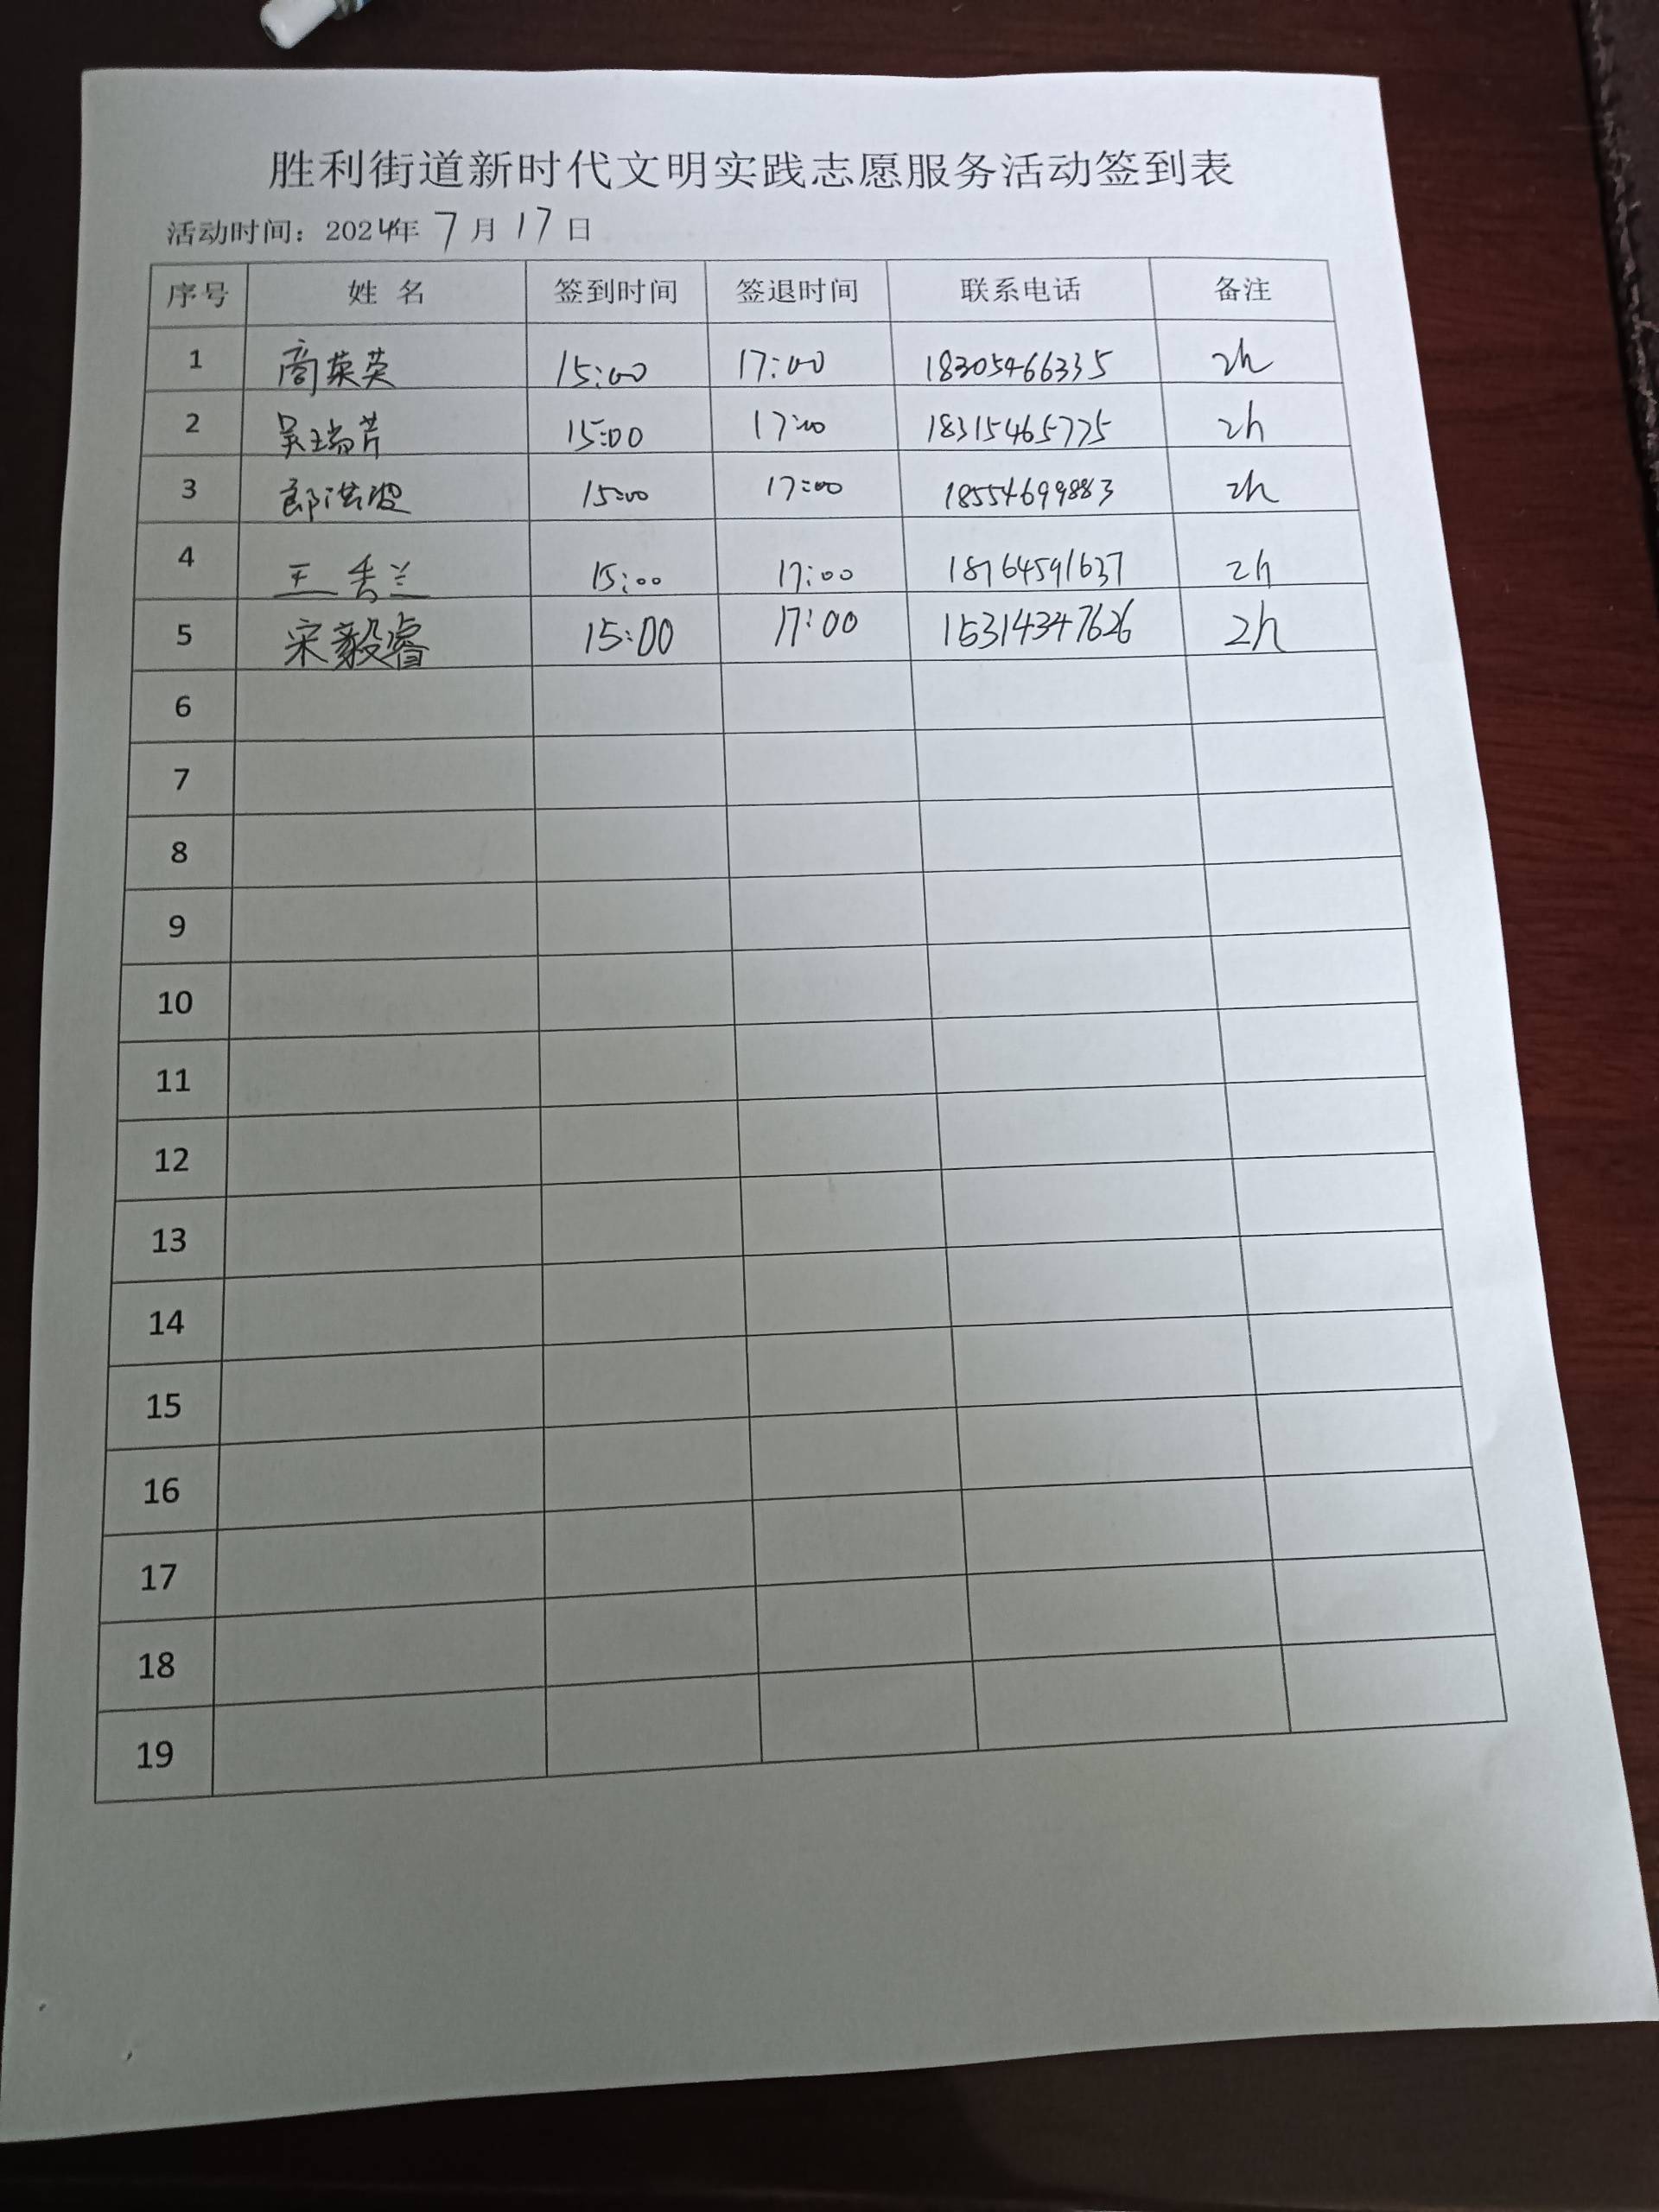 胜利街道新时代文明实践志愿服务活动签到表
活动时间：2024年 7 月 17 日
序号 姓 名 签到时间 签退时间 联系电话 备注
1 商荣英 15:00 17:00 18305466335 2h
2 吴瑞芹 15:00 17:00 18315465775 2h
3 郎洪波 15:00 17:00 18554699883 2h
4 王秀兰 15:00 17:00 18764591637 2h
5 宋毅睿 15:00 17:00 15314347626 2h
6
7
8
9
10
11
12
13
14
15
16
17
18
19